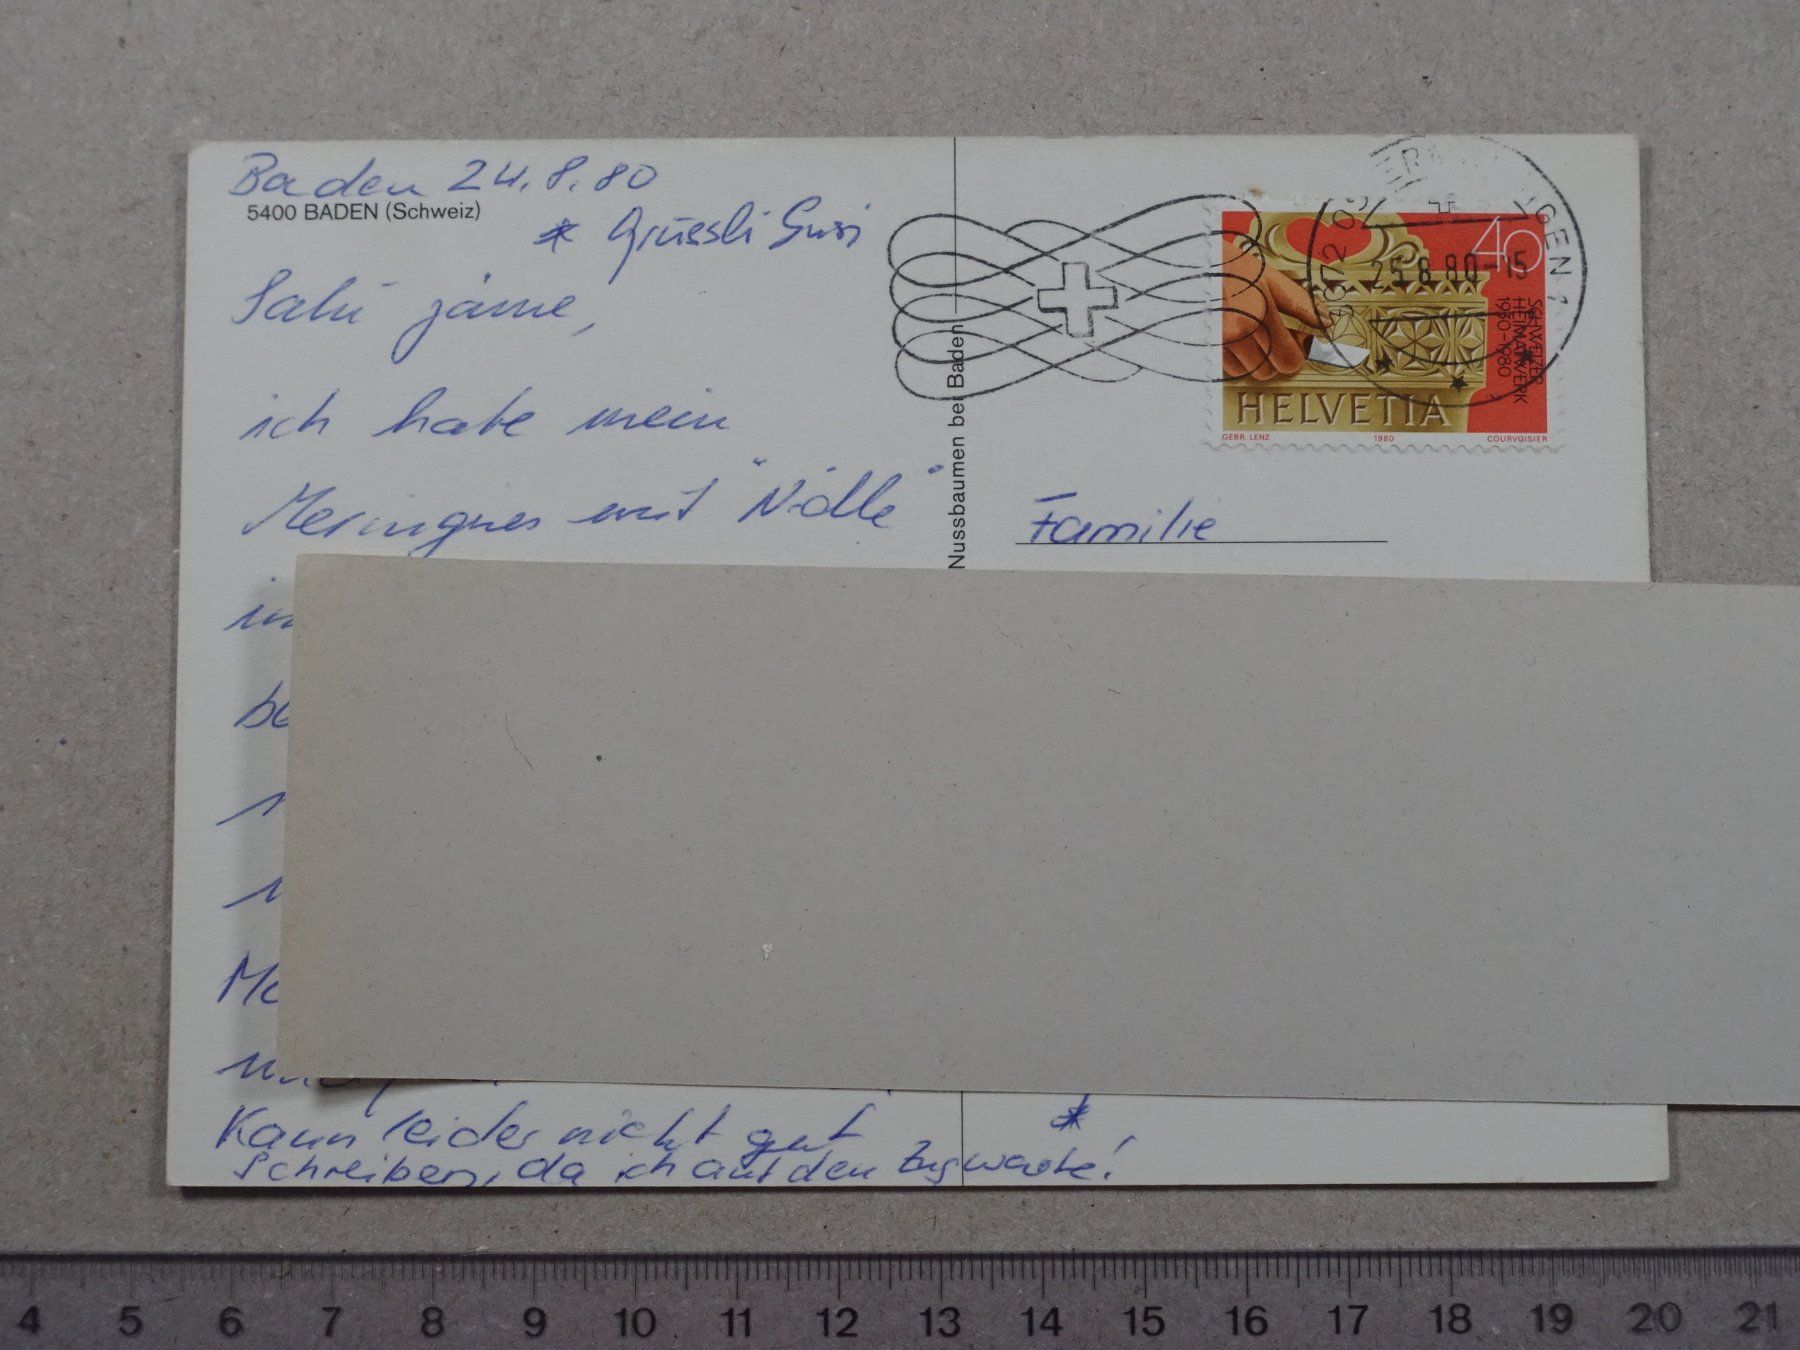 Baden 24.8.80
5400 BADEN (Schweiz)
* Grüessli Susi
Salü zäme,
ich habe mein
Meringues mit "Nidle"
Kann leider nicht gut
schreiben, da ich auf den Zug warte!
*
Nussbaumen bei Baden
25.8.80-15
40
SCHWEIZER
HEIMATWERK
1930-1980
HELVETIA
GEBR. LENZ 1980 COURVOISIER
Familie
4 5 6 7 8 9 10 11 12 13 14 15 16 17 18 19 20 21